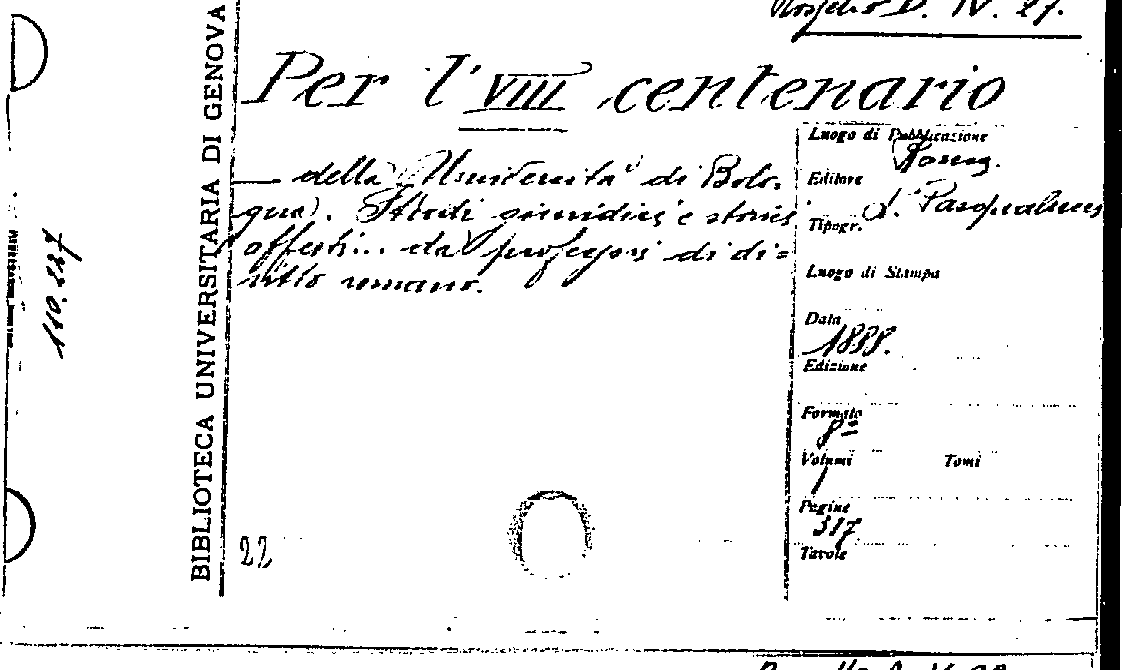 D. IV. 27.
BIBLIOTECA UNIVERSITARIA DI GENOVA
110.227
Per l'VIII centenario
della (Università di Bolo-
gna). Studi giuridici e storici
offerti... da professori di di=
ritto romano.
Luogo di Pubblicazione
Roma.
Editore
L. Pasqualucci
Tipogr.
Luogo di Stampa
Data
1888.
Edizione
Formato
8º
Volumi Tomi
1
Pagine
317
Tavole
22